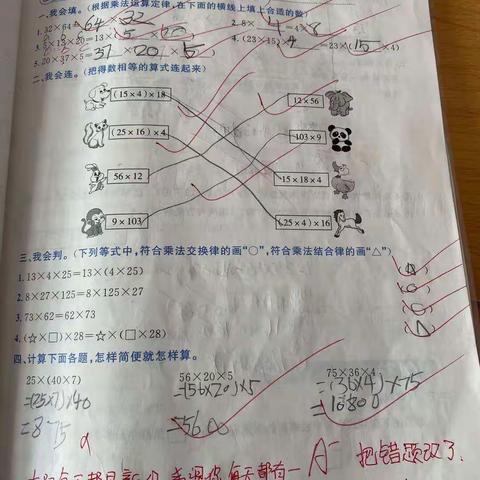 一、我会填。(根据乘法运算定律,在下面的横线上填上合适的数)
1. 32×64=64×32
2. 8×4=4×8
3. 5×13×20=13×(5×20)
4. (23×15)×4=23×(15×4)
5. 20×37×5=37×20×5
二、我会连。(把得数相等的算式连起来)
(15×4)×18
12×56
(25×16)×4
103×9
56×12
15×18×4
9×103
(25×4)×16
三、我会判。(下列等式中,符合乘法交换律的画“○”,符合乘法结合律的画“△”)
1. 13×4×25=13×(4×25)
2. 8×27×125=8×125×27
3. 73×62=62×73
4. (☆×□)×28=☆×(□×28)
四、计算下面各题,怎样简便就怎样算。
25×(40×7)
56×20×5
75×36×4
=(25×7)×40
=(56×20)×5
=(36×4)×75
=875
=5600
=10800
A- 把错题改了.